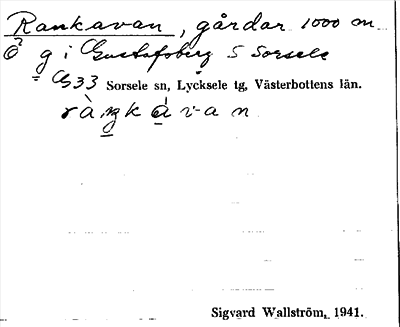 Rankavan, gårdar 1000 m
Ö g i Gustafsberg S Sorsele
C33 Sorsele sn, Lycksele tg, Västerbottens län.
ràŋkávan
Sigvard Wallström, 1941.